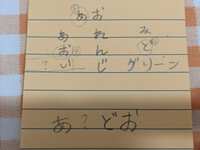 あお
あ れ み
お ん ど
? い じ グリーン
あ?どお